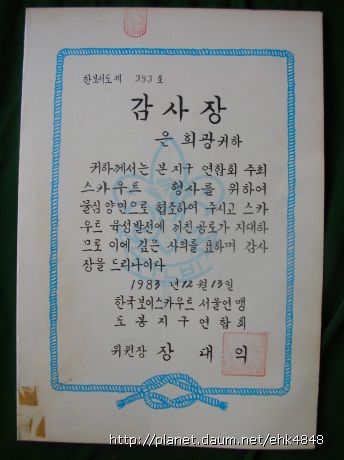 한보서도제 383 호
감사장
은 희광 귀하
귀하께서는 본 지구 연합회 주최
스카우트 행사를 위하여
물심 양면으로 협조하여 주시고 스카
우트 육성발전에 끼친 공로가 지대하
므로 이에 깊은 사의를 표하며 감사
장을 드리나이다.
1983 년 12 월 13 일
한국보이스카우트 서울연맹
도봉지구연합회
위원장 장 대 익
http://planet.daum.net/ehk4848